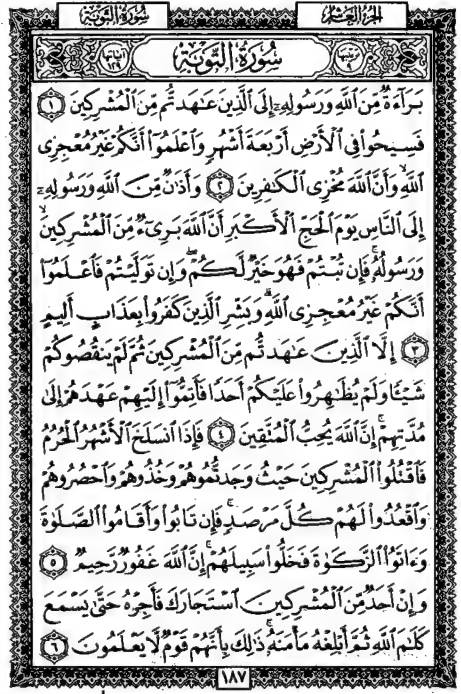 سُورَةُ التَّوْبَةِ
الجُزْءُ العَاشِرُ
سُورَةُ التَّوْبَةِ
بَرَآءَةٌ مِّنَ ٱللَّهِ وَرَسُولِهِۦٓ إِلَى ٱلَّذِينَ عَـٰهَدتُّم مِّنَ ٱلْمُشْرِكِينَ ١
فَسِيحُوا۟ فِى ٱلْأَرْضِ أَرْبَعَةَ أَشْهُرٍ وَٱعْلَمُوٓا۟ أَنَّكُمْ غَيْرُ مُعْجِزِى
ٱللَّهِ ۙ وَأَنَّ ٱللَّهَ مُخْزِى ٱلْكَـٰفِرِينَ ٢ وَأَذَٰنٌ مِّنَ ٱللَّهِ وَرَسُولِهِۦٓ
إِلَى ٱلنَّاسِ يَوْمَ ٱلْحَجِّ ٱلْأَكْبَرِ أَنَّ ٱللَّهَ بَرِىٓءٌ مِّنَ ٱلْمُشْرِكِينَ ۙ
وَرَسُولُهُۥ ۚ فَإِن تُبْتُمْ فَهُوَ خَيْرٌ لَّكُمْ ۖ وَإِن تَوَلَّيْتُمْ فَٱعْلَمُوٓا۟
أَنَّكُمْ غَيْرُ مُعْجِزِى ٱللَّهِ ۗ وَبَشِّرِ ٱلَّذِينَ كَفَرُوا۟ بِعَذَابٍ أَلِيمٍ
٣ إِلَّا ٱلَّذِينَ عَـٰهَدتُّم مِّنَ ٱلْمُشْرِكِينَ ثُمَّ لَمْ يَنقُصُوكُمْ
شَيْـًٔا وَلَمْ يُظَـٰهِرُوا۟ عَلَيْكُمْ أَحَدًا فَأَتِمُّوٓا۟ إِلَيْهِمْ عَهْدَهُمْ إِلَىٰ
مُدَّتِهِمْ ۚ إِنَّ ٱللَّهَ يُحِبُّ ٱلْمُتَّقِينَ ٤ فَإِذَا ٱنسَلَخَ ٱلْأَشْهُرُ ٱلْحُرُمُ
فَٱقْتُلُوا۟ ٱلْمُشْرِكِينَ حَيْثُ وَجَدتُّمُوهُمْ وَخُذُوهُمْ وَٱحْصُرُوهُمْ
وَٱقْعُدُوا۟ لَهُمْ كُلَّ مَرْصَدٍ ۚ فَإِن تَابُوا۟ وَأَقَامُوا۟ ٱلصَّلَوٰةَ
وَءَاتَوُا۟ ٱلزَّكَوٰةَ فَخَلُّوا۟ سَبِيلَهُمْ ۚ إِنَّ ٱللَّهَ غَفُورٌ رَّحِيمٌ ٥
وَإِنْ أَحَدٌ مِّنَ ٱلْمُشْرِكِينَ ٱسْتَجَارَكَ فَأَجِرْهُ حَتَّىٰ يَسْمَعَ
كَلَـٰمَ ٱللَّهِ ثُمَّ أَبْلِغْهُ مَأْمَنَهُۥ ۚ ذَٰلِكَ بِأَنَّهُمْ قَوْمٌ لَّا يَعْلَمُونَ ٦
١٨٧